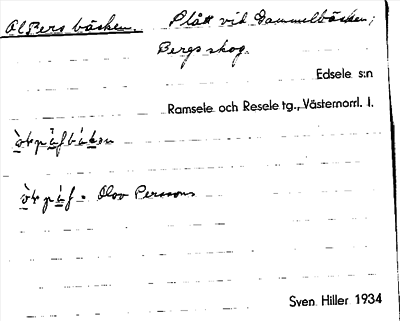 Ol Pers bäcken. Slått vid Gammelbäcken;
Bergs skog.
Edsele s:n
Ramsele och Resele tg., Västernorrl. l.
Olov Perssons
Sven Hiller 1934